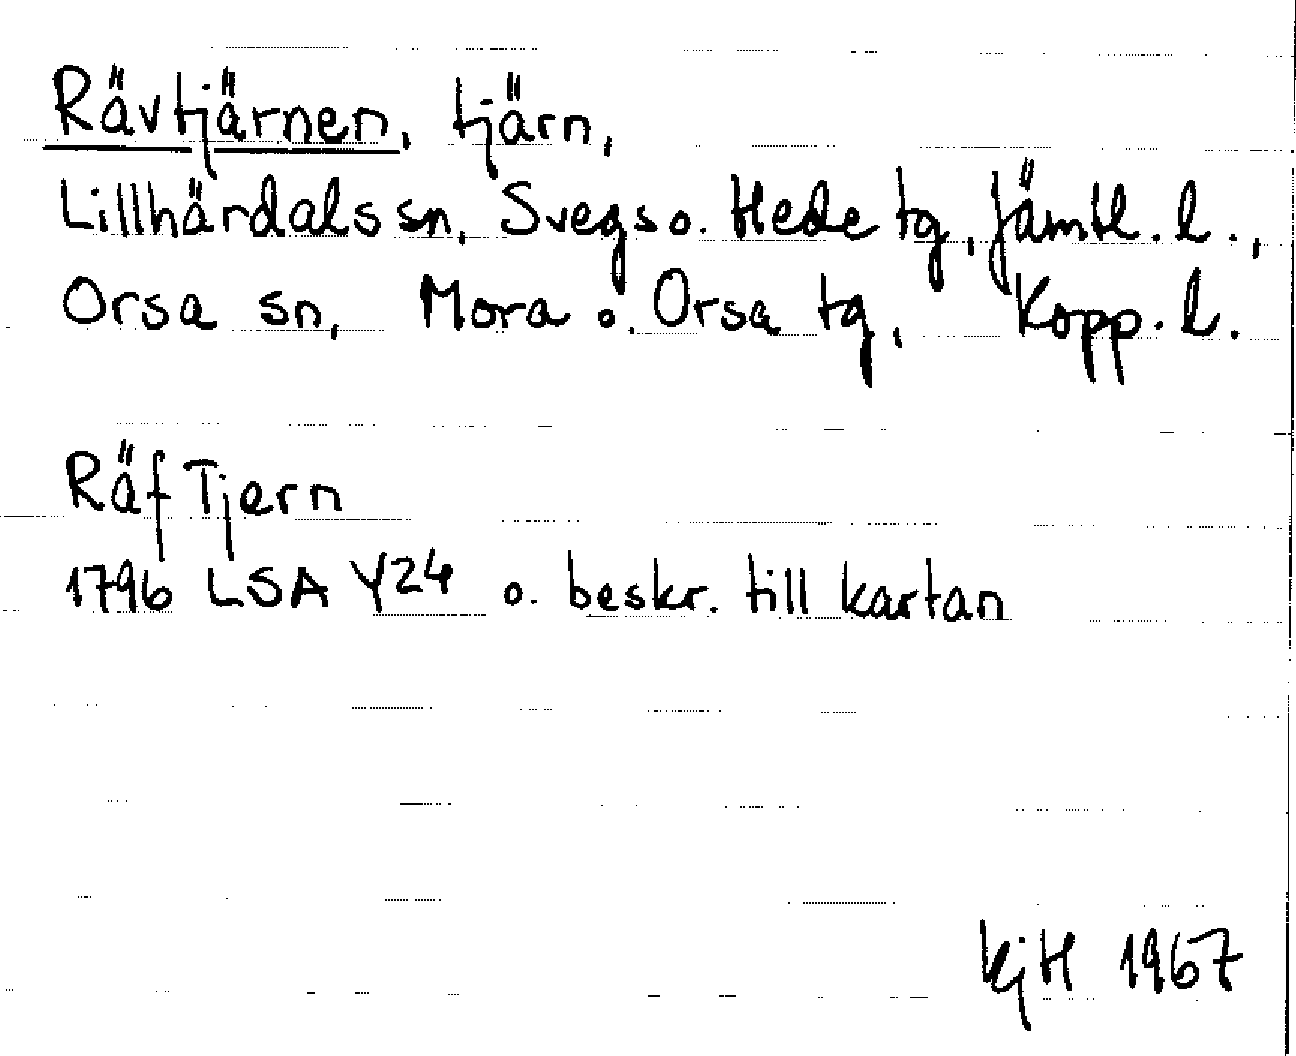 Rävtjärnen, tjärn,
Lillhärdals sn, Svegs o. Hede tg, Jämtl. l.,
Orsa sn, Mora o. Orsa tg, Kopp. l.
Räf Tjern
1796 LSA Y24 o. beskr. till kartan
KjH 1967